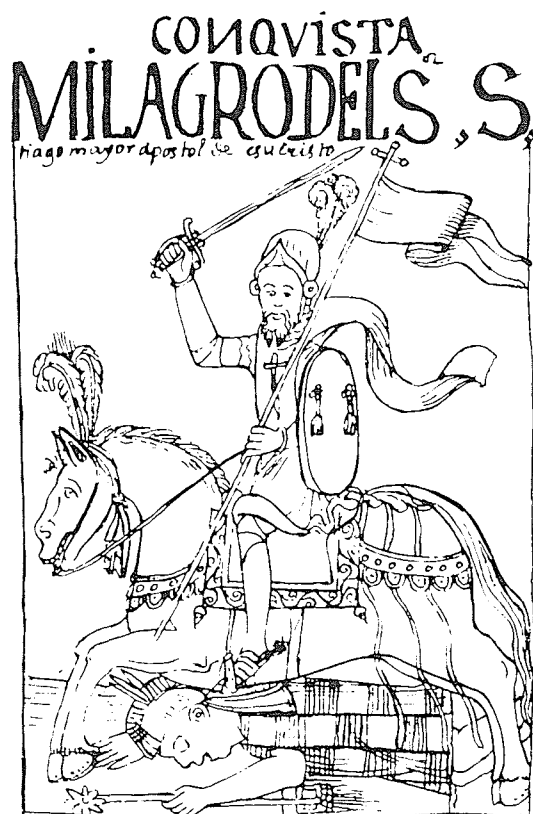 CONQVISTA
MILAGRO DEL S, S,
tiago mayor apostol de esucristo